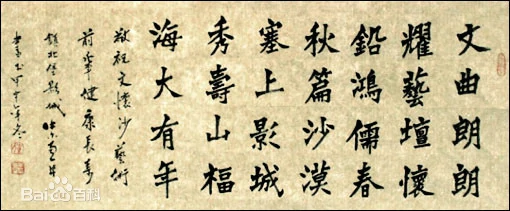 文曲朗朗
耀藝壇懷
鉛鴻儒春
秋篇沙漠
塞上影城
秀壽山福
海大有年
敬祝文懷沙藝術
前輩健康長壽
鎮北堡影城
年冬
Bai百科